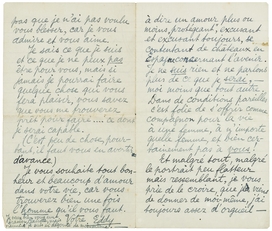 pas que je n'ai pas voulu
vous blesser, car je vous
admire et vous aime.
Je sais ce que je suis
et ce que je ne peux pas
être pour vous, mais si
jamais je pouvais faire
quelque chose qui vous
fera plaisir, vous savez
que vous me trouverez
prêt pour fair... ce dont
je serai capable.
(C'est peu de chose, pour-
tant il vous
davance)
Je vous souhaite tout bon-
heur et beaucoup d'amour
dans votre vie, car vous
trouverez bien une fois
l'homme qu'il vous faut.
Votre
à dire un amour plus ou
moins protégeant, excusant
et excusant toujours, se
contentant de châteaux en
Espagne concernant l'avenir.
Je ne suis rien et ne parlons
plus de ce que je serai,
moi moins que tout autre.
Dans ces conditions pareilles
c'est folie de s'offrir comme
compagnon pour la vie
à une femme, à n'importe
quelle femme, et bien cer-
tainement pas à vous!
Et malgré tout, malgré
le portrait peu flatteur
mais ressemblant, je vous
prie de le croire, que je viens
de donner de moi même, j'ai
toujours assez d'orgueil